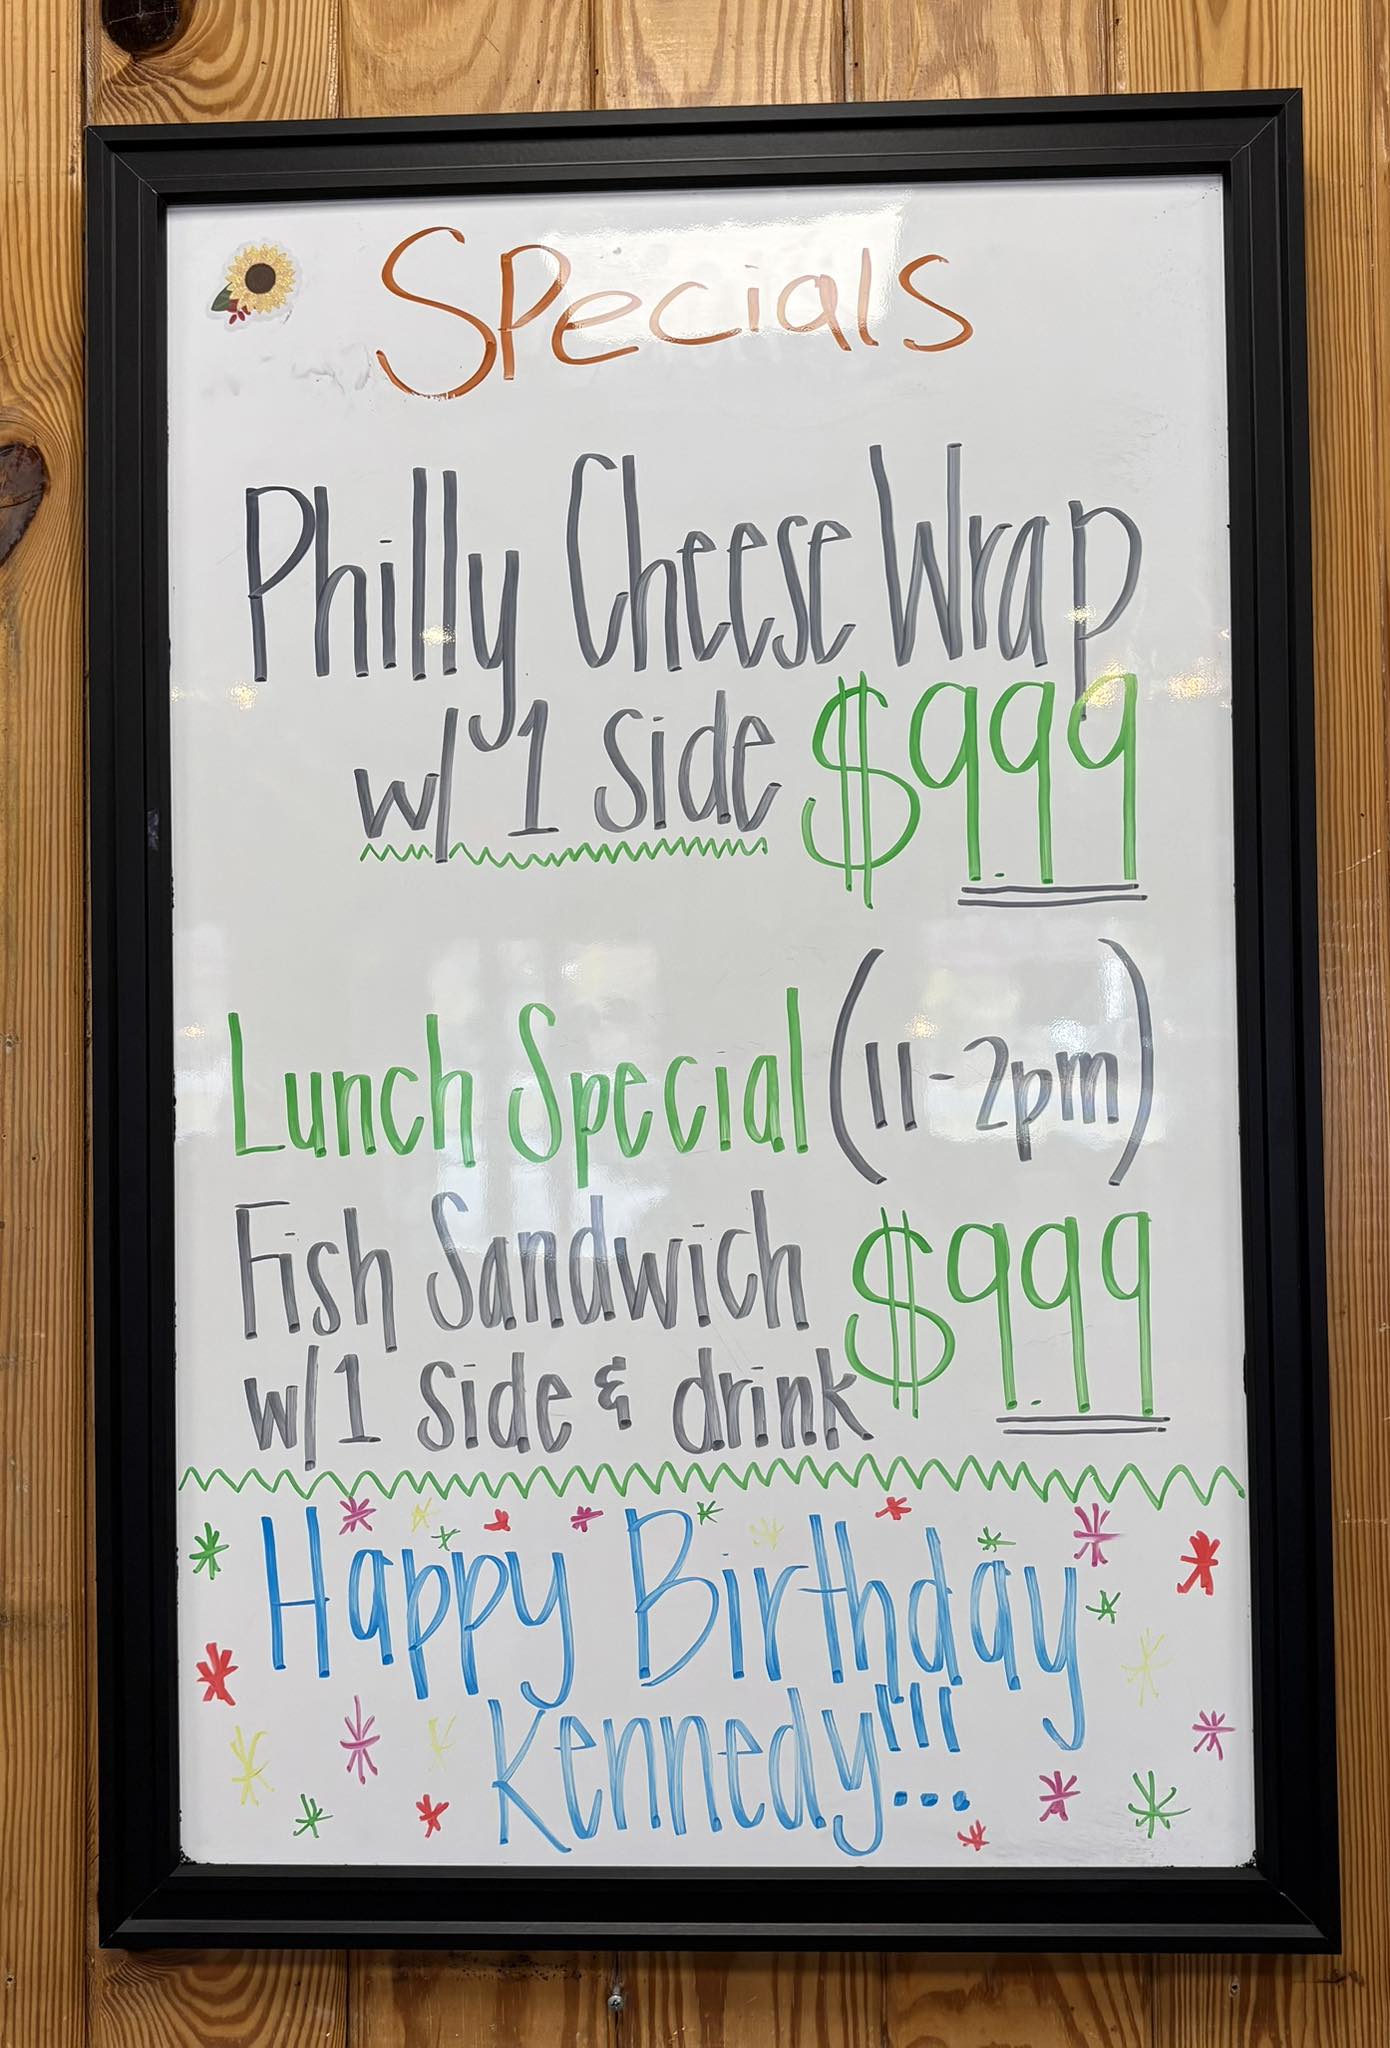 Specials
Philly Cheese Wrap
w/ 1 side $9.99
Lunch Special (11-2pm)
Fish Sandwich $9.99
w/1 side & drink
Happy Birthday
Kennedy!!!...